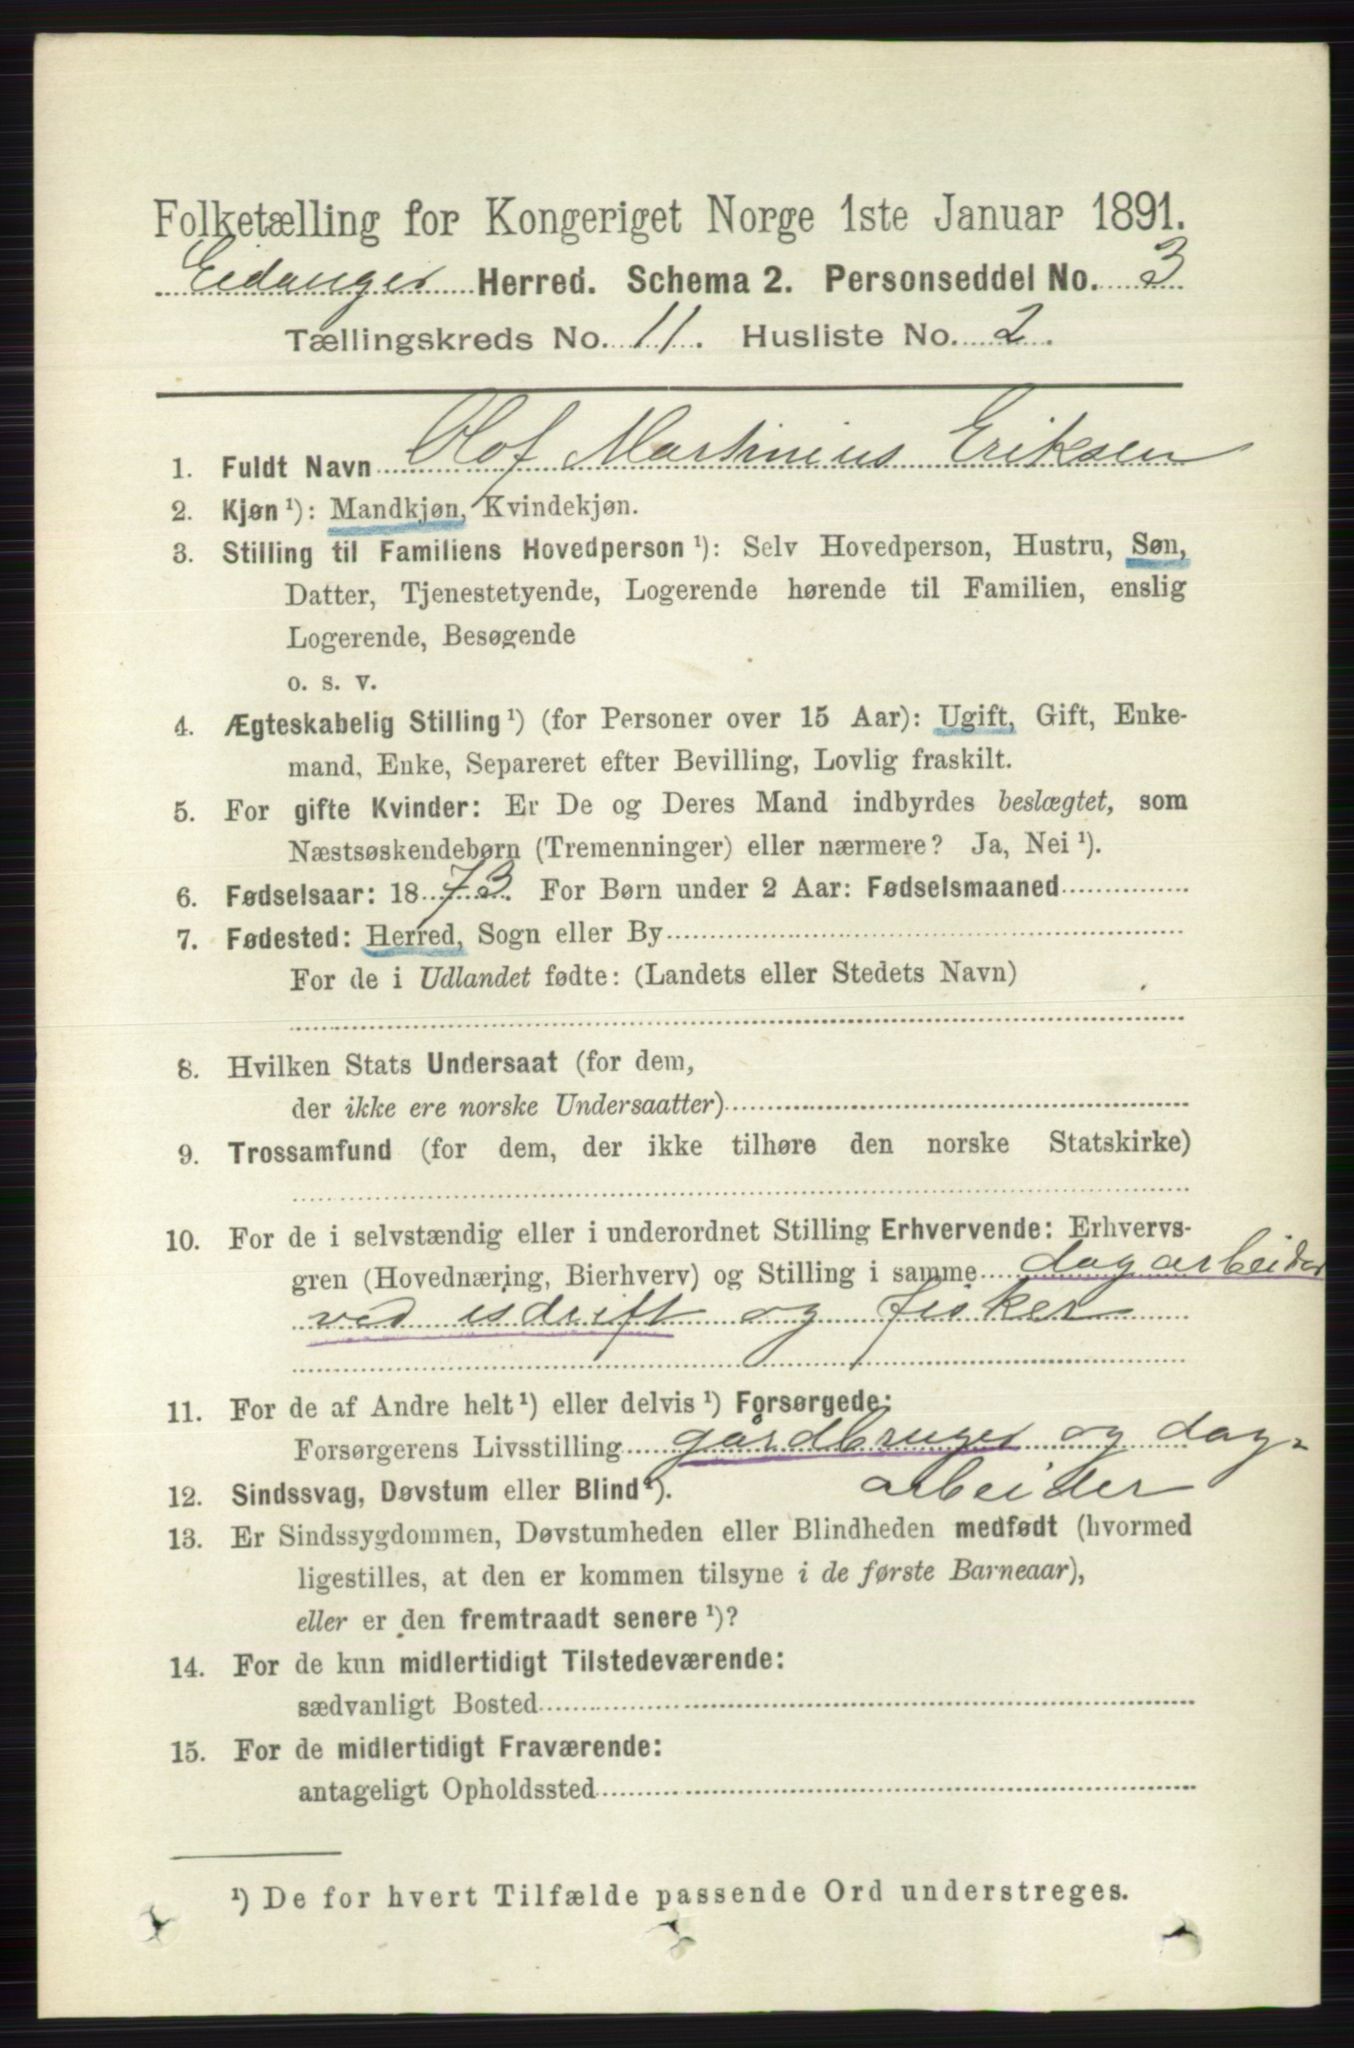 Folketælling for Kongeriget Norge 1ste Januar 1891.
Eidanger Herred. Schema 2. Personseddel No. 3
Tællingskreds No. 11. Husliste No. 2.
1. Fuldt Navn Olof Martinius Eriksen
2. Kjøn ¹): Mandkjøn, Kvindekjøn.
3. Stilling til Familiens Hovedperson ¹): Selv Hovedperson, Hustru, Søn,
Datter, Tjenestetyende, Logerende hørende til Familien, enslig
Logerende, Besøgende
o. s. v.
4. Ægteskabelig Stilling ¹) (for Personer over 15 Aar): Ugift, Gift, Enke-
mand, Enke, Separeret efter Bevilling, Lovlig fraskilt.
5. For gifte Kvinder: Er De og Deres Mand indbyrdes beslægtet, som
Næstsøskendebørn (Tremenninger) eller nærmere? Ja, Nei ¹).
6. Fødselsaar: 1873. For Børn under 2 Aar: Fødselsmaaned
7. Fødested: Herred, Sogn eller By
For de i Udlandet fødte: (Landets eller Stedets Navn)
8. Hvilken Stats Undersaat (for dem,
der ikke ere norske Undersaatter)
9. Trossamfund (for dem, der ikke tilhøre den norske Statskirke)
10. For de i selvstændig eller i underordnet Stilling Erhvervende: Erhvervs-
gren (Hovednæring, Bierhverv) og Stilling i samme dagarbeider
ved isdrift og fisker
11. For de af Andre helt ¹) eller delvis ¹) Forsørgede:
Forsørgerens Livsstilling gårdbruger og dag-
12. Sindssvag, Døvstum eller Blind ¹). arbeider
13. Er Sindssygdommen, Døvstumheden eller Blindheden medfødt (hvormed
ligestilles, at den er kommen tilsyne i de første Barneaar),
eller er den fremtraadt senere ¹)?
14. For de kun midlertidigt Tilstedeværende:
sædvanligt Bosted
15. For de midlertidigt Fraværende:
antageligt Opholdssted
¹) De for hvert Tilfælde passende Ord understreges.